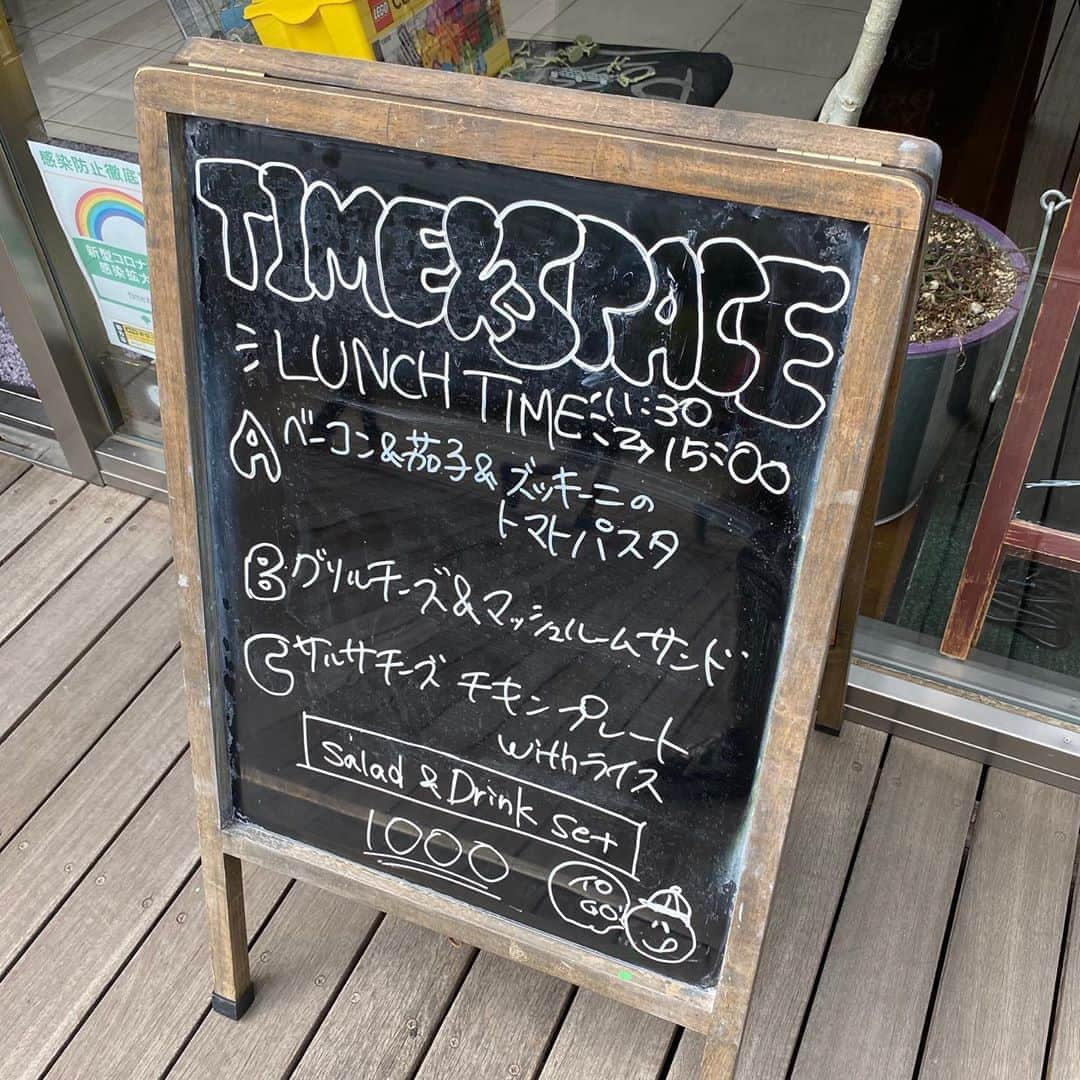 LEGO
感染防止徹底
新型コロナ
感染拡大
TIME&SPACE
LUNCH TIME 11:30
→15:00
A ベーコン&茄子&ズッキーニの
トマトパスタ
B グリルチーズ&マッシュルームサンド
C サルサチーズ チキンプレート
withライス
Salad & Drink Set
1000
TO
GO!